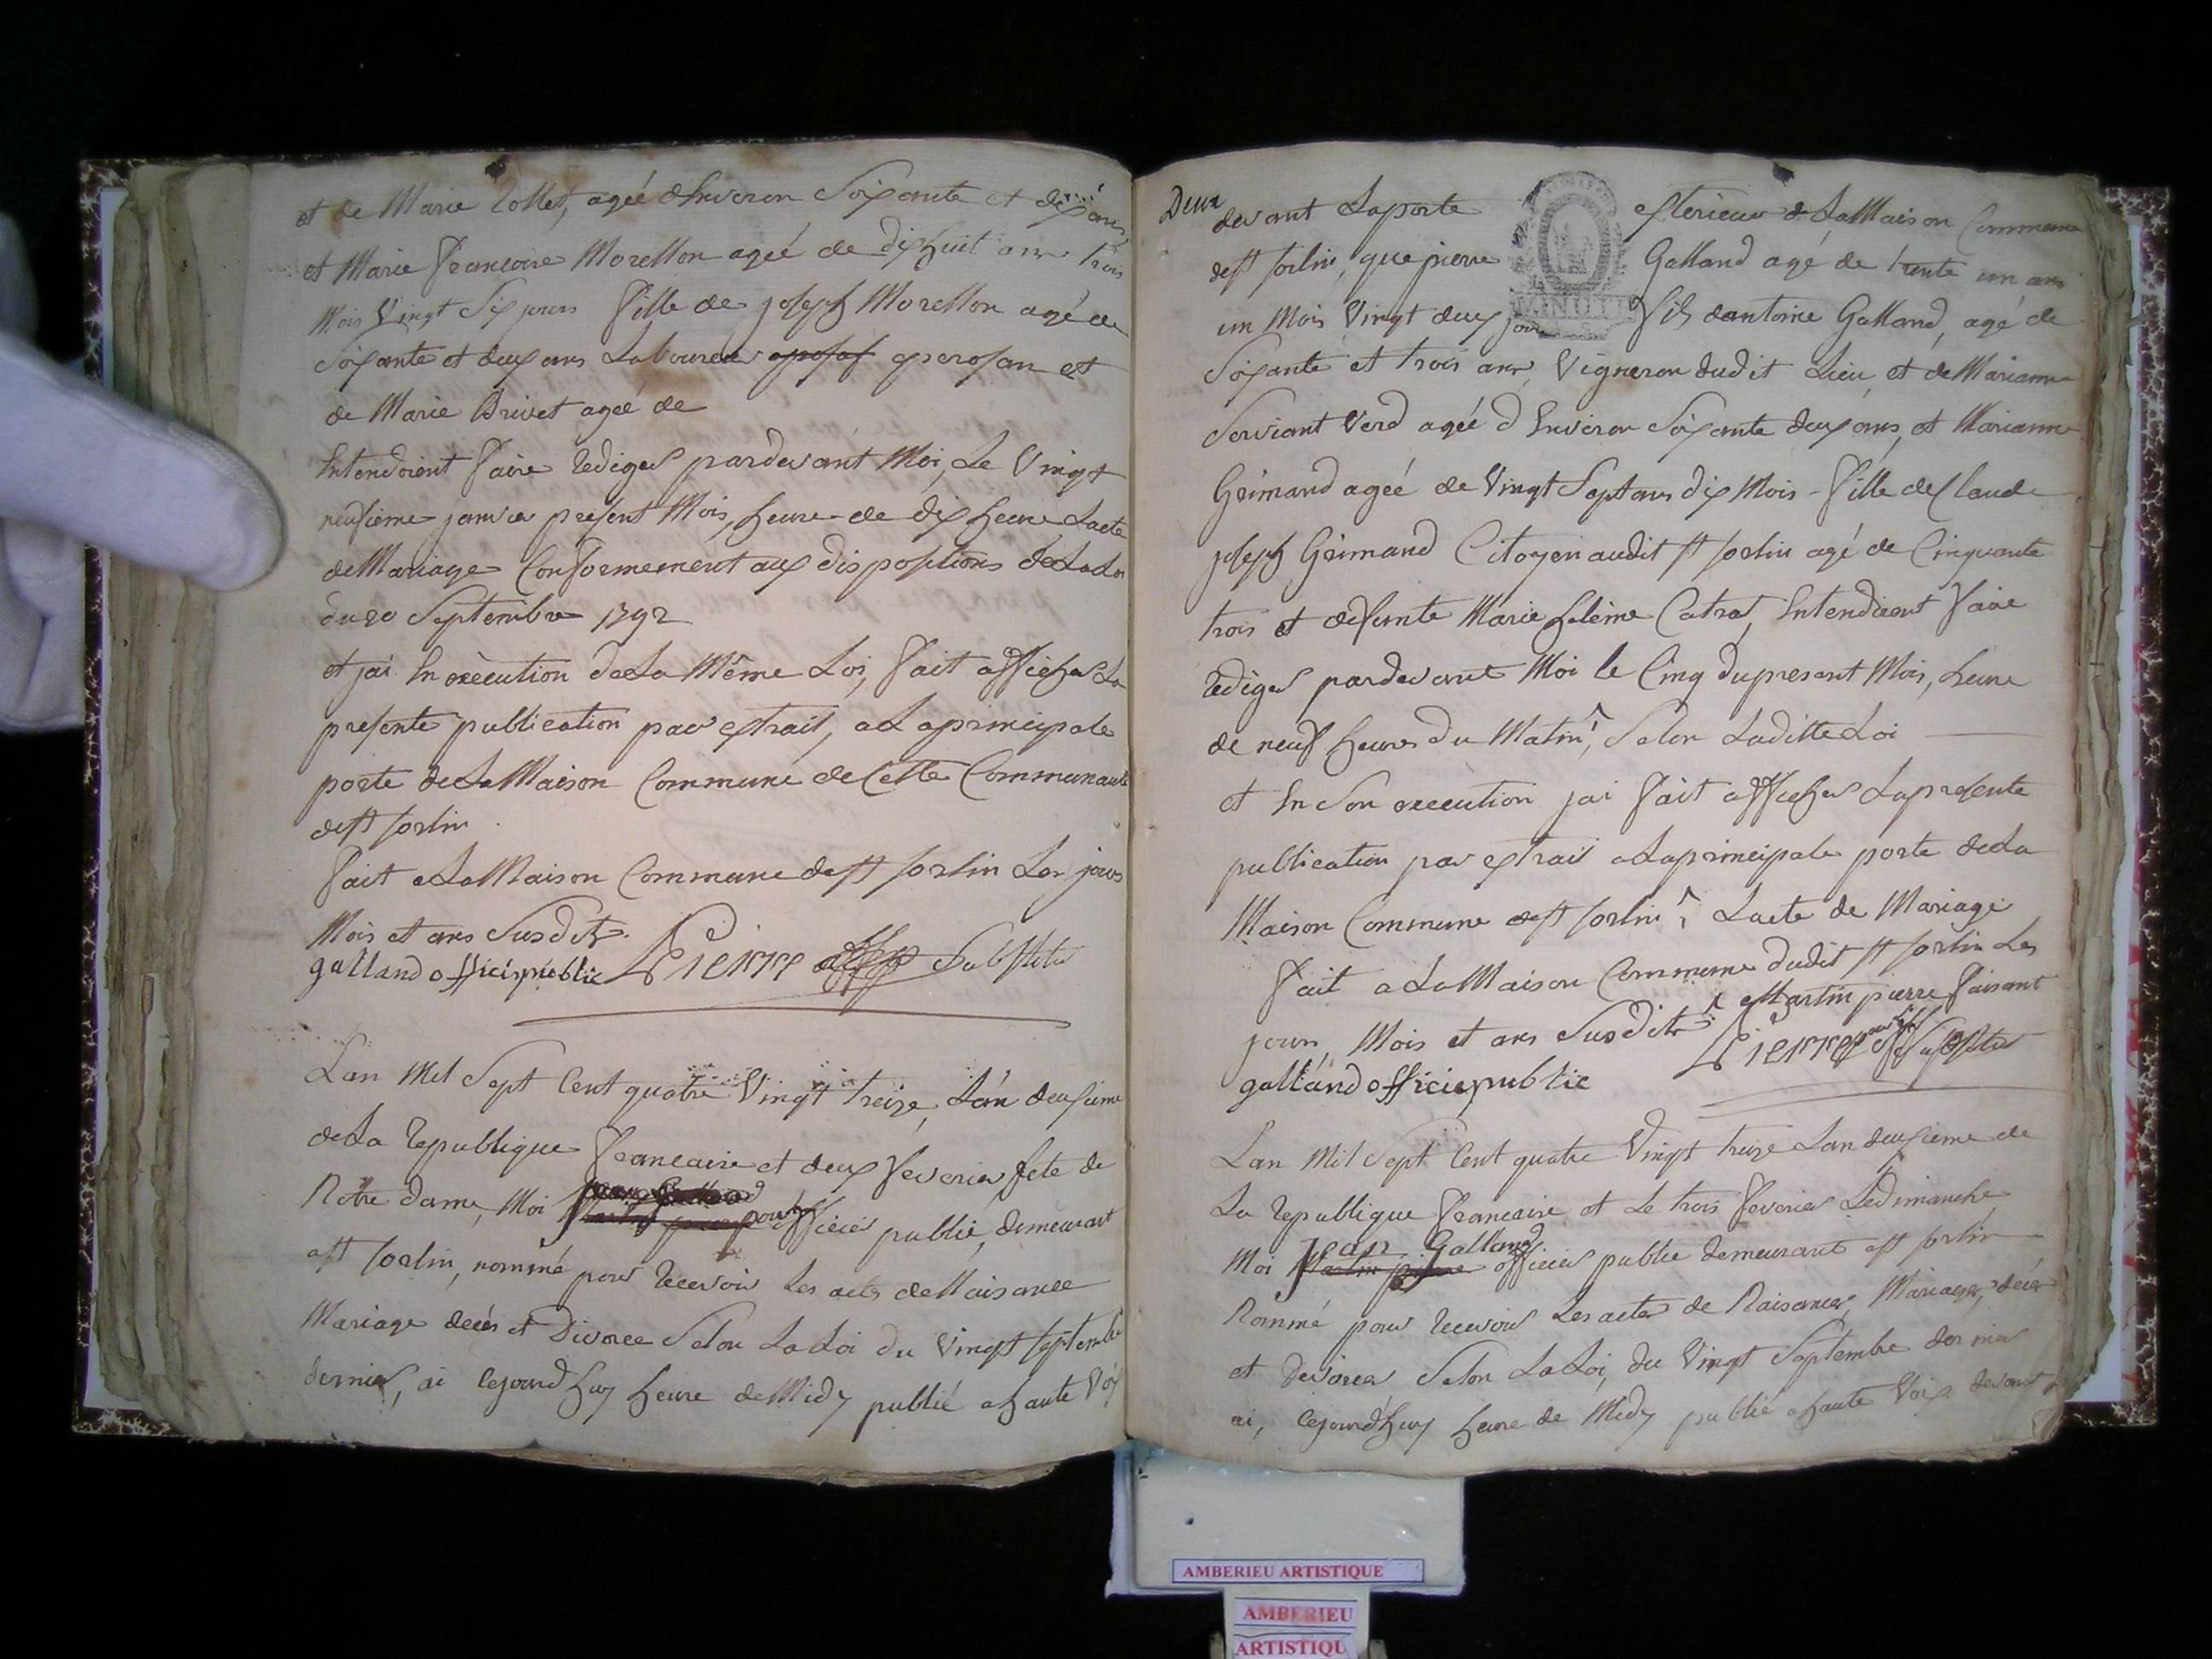 et de Marie Collet, ageé d'Environ Soixante et dix ans
et Marie Francoise Morellon ageé de dixhuit ans trois
Mois Vingt Six jours Fille de joseph Morellon agé de
Soixante et deux ans Laboureur a perosan et
de Marie Brivet ageé de
Entendoient Faire Rediger pardevant Moi, Le Vingt
neufieme janvier present Mois, heure de dix heure Lacte
de Mariage Conformement aux dispositions de La Loi
du 20 Septembre 1792
et jai En exècution de La Même Loi, Fait afficher La
presente publication par extrait, a La principale
porte de La Maison Commune de Cette Communauté
de st sorlin
Fait a La Maison Commune de st sorlin Les jours
Mois et ans Susdits
galland officie public Pierre Substitu
Lan Mil Sept Cent quatre Vingt treize, L'an deuxieme
de La Republique Francaise et deux Fevrier fete de
Nôtre dame, Moi officier public, demeurant
a st sorlin, nommé pour Recevoir Les acts de Naisance
Mariage decés et Divorce Selon La Loi du Vingt septembre
dernier, ai cejourdhuy heure de Midy publié a haute Voix
Deux
devant La porte exterieur de La Maison Commune
de st sorlin, que pierre Galland agé de trente un ans
un Mois Vingt deux jours Fils dantoine Galland, agé de
Soixante et trois ans, Vigneron dudit Lieu, et de Marianne
Serviant Verd ageé d'Environ Soixante deux ans, et Marianne
Grimand ageé de Vingt Sept ans dix Mois Fille de Claude
joseph Grimand Citoyen audit st sorlin agé de Cinquante
trois et defunte Marie helène Catra, Entendoient Faire
Rediger pardevant Moi le Cinq du present Mois, heure
de neuf heures du Matin, Selon Laditte Loi
et En Son execution jai Fait afficher La presente
publication par extrait a La principale porte de La
Maison Commune de st sorlin Lacte de Mariage
Fait a La Maison Commune dudit st sorlin Les
jours, Mois et ans Susdits Martin pierre Faisant
pour
galland officie public Pierre Substitu
Lan Mil Sept Cent quatre Vingt treize Lan deuxieme de
La Republique Francaise et Le trois Fevrier Le dimanche
Moi jean Galland officier public demeurant a st sorlin
Nommé pour Recevoir Les actes de Naisances, Mariages, decés
et devorces Selon La Loi, du Vingt Septembre dernier
ai, cejourdhuy heure de Midy publié a haute Voix devant
AMBERIEU ARTISTIQUE
AMBERIEU
ARTISTIQU